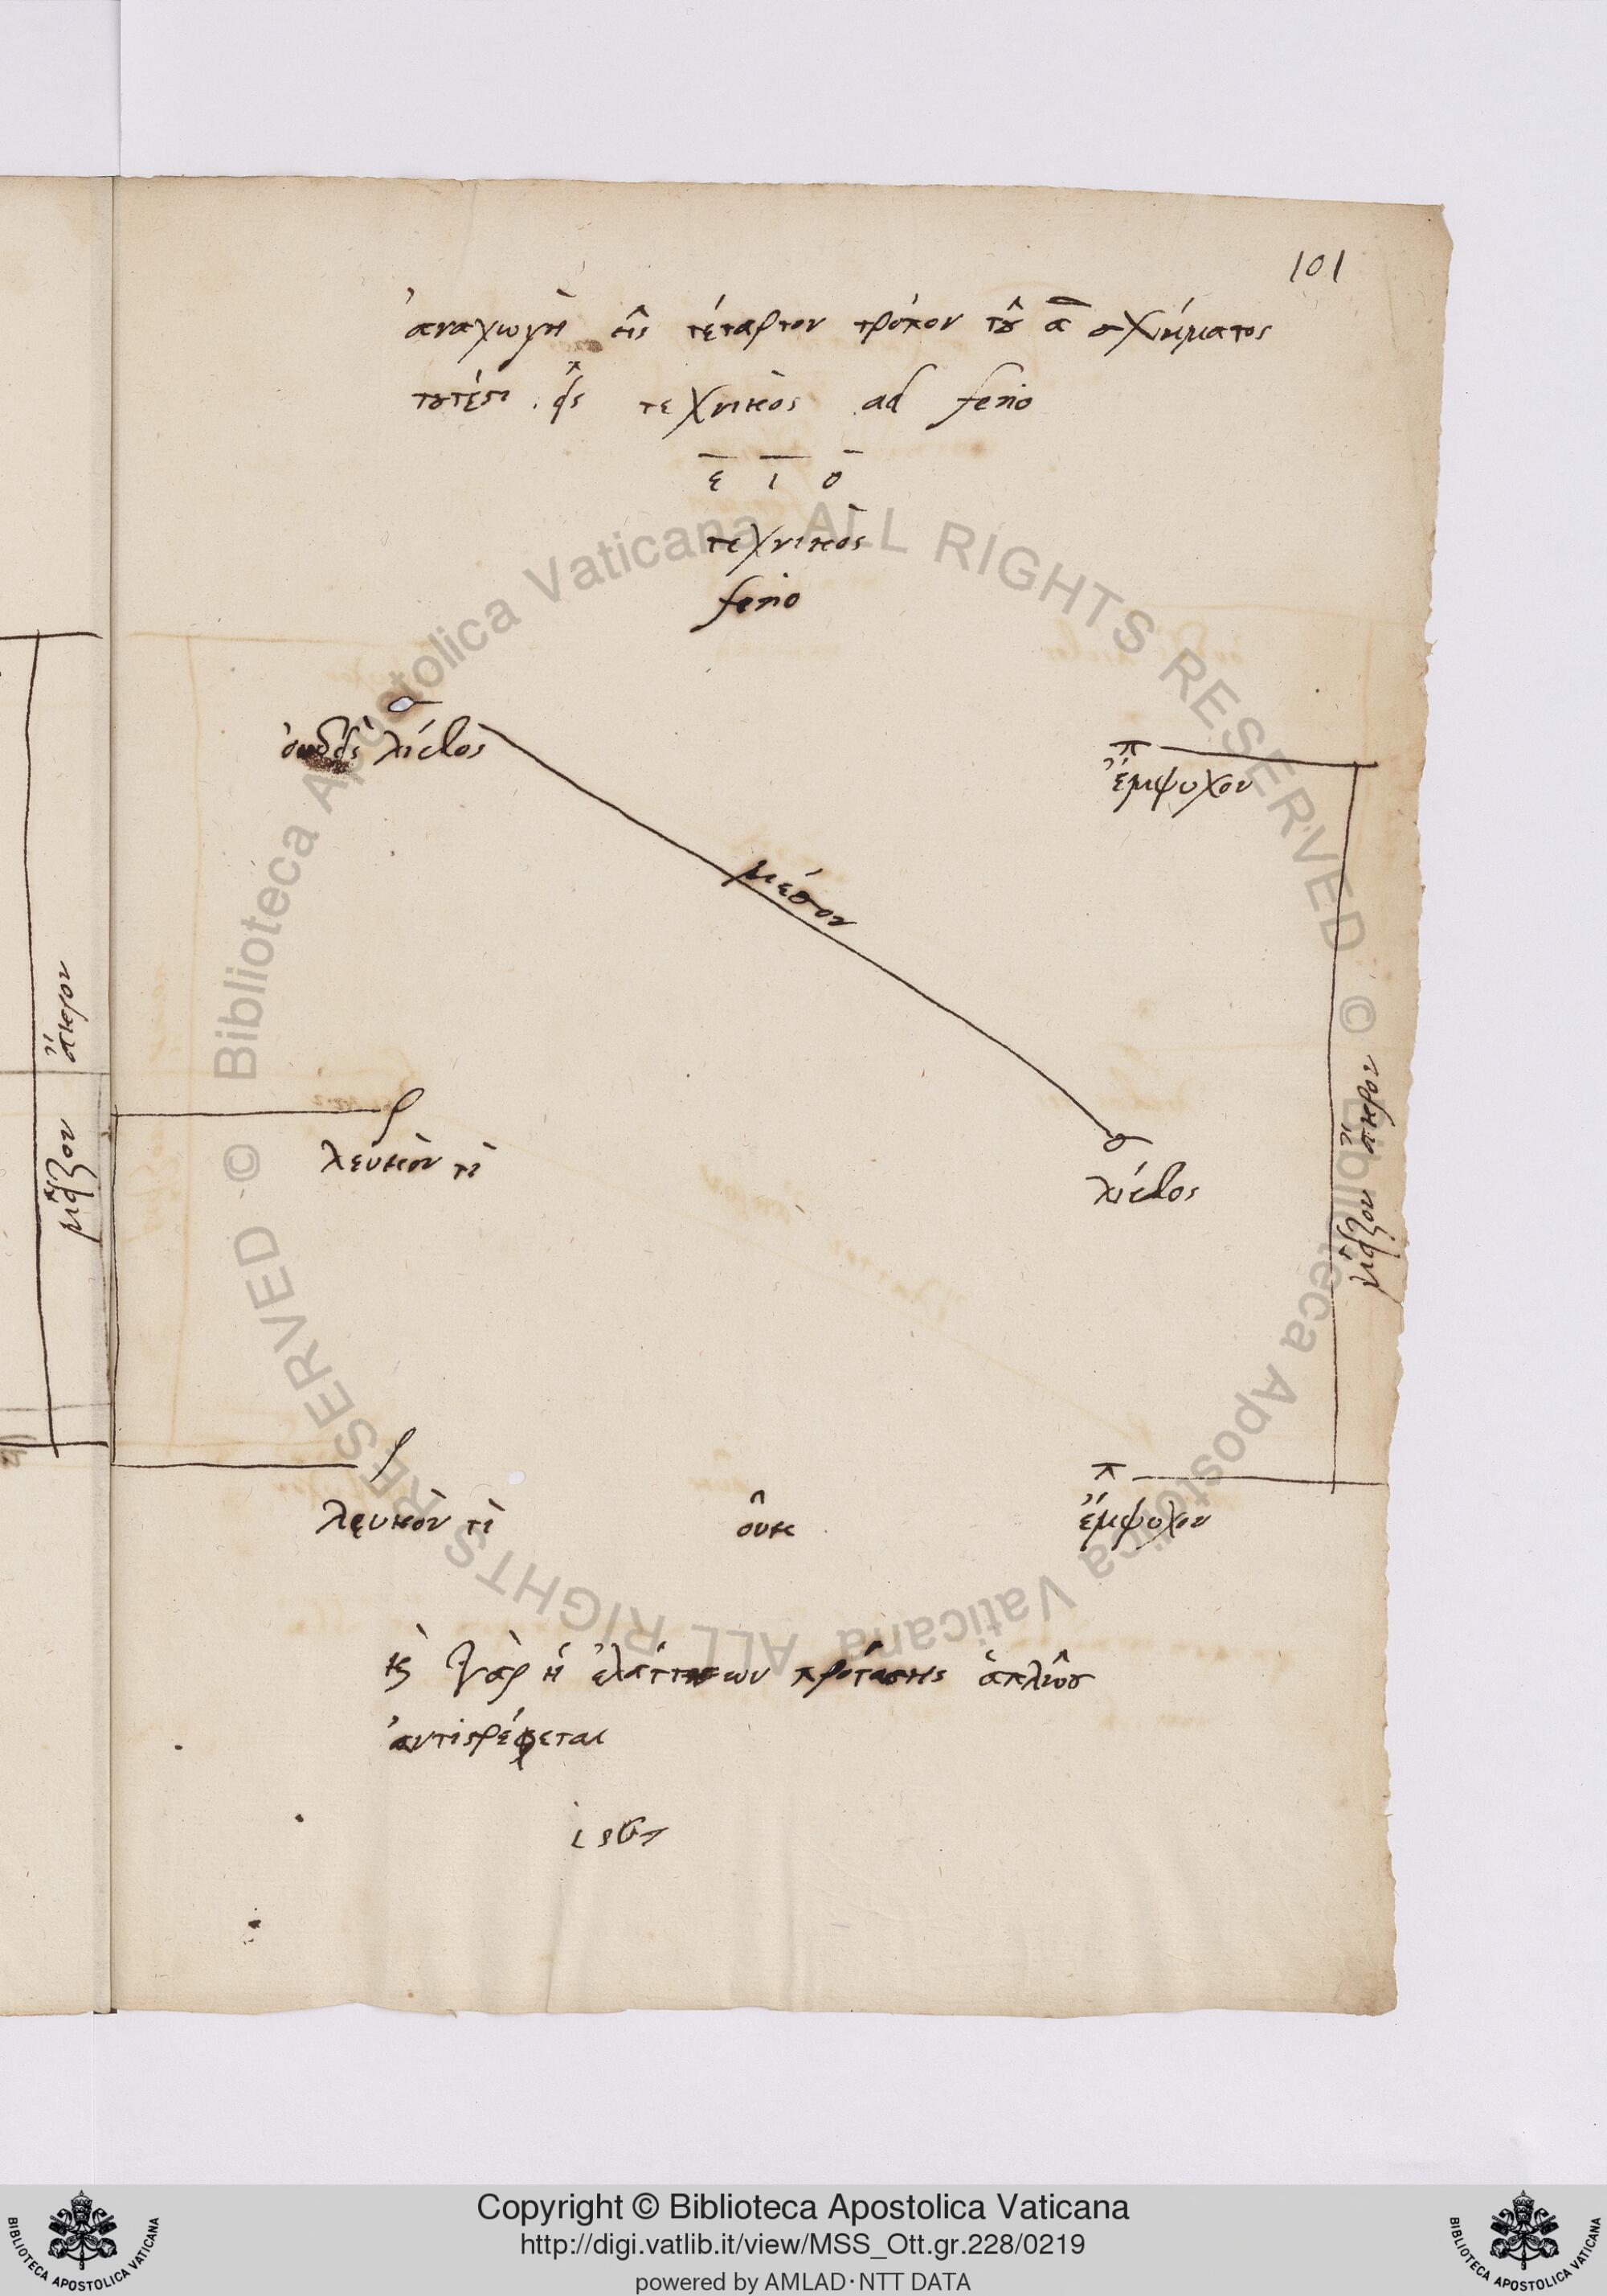 101
ἀναγωγὴ εἰς τέταρτον τρόπον τοῦ α σχήματος
τουτέστι εἰς τεχνικὸς ad ferio
ε ι ο
τεχνικὸς
ferio
α
οὐδεὶς λίθος
π
ἔμψυχον
μέσον
ἄκρον
μεῖζον
ρ
λευκὸν τὶ
σ
λίθος
μεῖζον ἄκρον
ρ
λευκὸν τὶ
οὐκ
π
ἔμψυχον
καὶ γὰρ ἡ ἐλάττων πρότασης ἁπλῶσ
ἀντιστρέφεται
Copyright © Biblioteca Apostolica Vaticana
http://digi.vatlib.it/view/MSS_Ott.gr.228/0219
powered by AMLAD·NTT DATA
BIBLIOTECA APOSTOLICA VATICANA
BIBLIOTECA APOSTOLICA VATICANA
© Biblioteca Apostolica Vaticana ALL RIGHTS RESERVED © Biblioteca Apostolica Vaticana ALL RIGHTS RESERVED